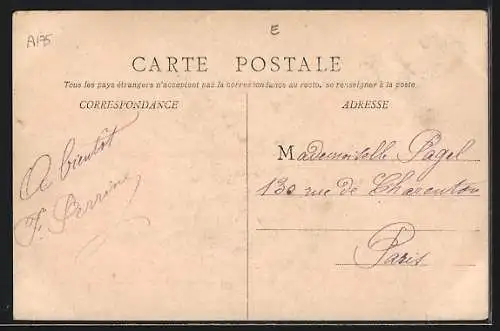 A175
E
CARTE POSTALE
Tous les pays étrangers n'acceptent pas la correspondance au recto, se renseigner à la poste
CORRESPONDANCE
ADRESSE
A bientôt
F. Perrine
Mademoiselle Pagel
130 rue de Charenton
Paris